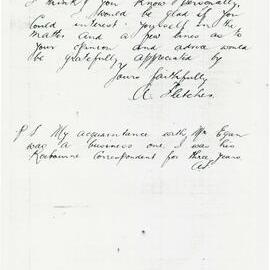 I think you know personally.
I would be glad if you
could interest yourself in the
matter and a few lines as to
your opinion and advice would
be gratefully appreciated by
Yours faithfully
A. Fletcher.
P S My acquaintance with Mr Egan
was a business one, I was his
Correspondent for three years.